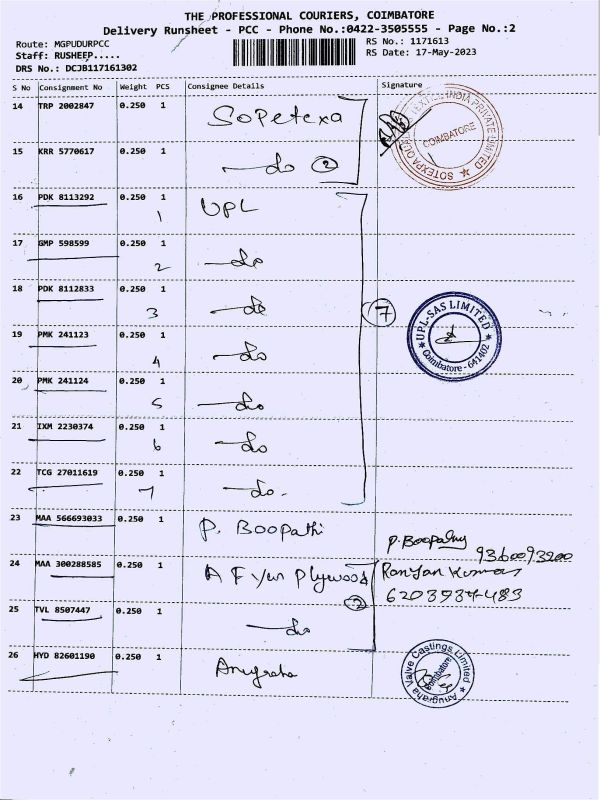 THE PROFESSIONAL COURIERS, COIMBATORE
Delivery Runsheet - PCC - Phone No.:0422-3505555 - Page No.:2
Route: MGPUDURPCC
RS No.: 1171613
Staff: RUSHEEP.....
RS Date: 17-May-2023
DRS No.: DCJB117161302
S No Consignment No Weight PCS Consignee Details Signature
14 TRP 2002847 0.250 1 Sopetexa
SOTEXPA QUALI TEXTILE INDIA PRIVATE LIMITED COIMBATORE
15 KRR 5770617 0.250 1 do 2
16 PDK 8113292 0.250 1 UPL
1
17 GMP 598599 0.250 1 do
2
18 PDK 8112833 0.250 1 do
3 7
UPL-SAS LIMITED Coimbatore - 641402
19 PMK 241123 0.250 1 do
4
20 PMK 241124 0.250 1 do
5
21 IXM 2230374 0.250 1 do
6
22 TCG 27011619 0.250 1 do.
7
23 MAA 566693033 0.250 1 P. Boopathi
P. Boopathy 9360093200
24 MAA 300288585 0.250 1 A F Plywood
2
Ranjan Kumar
6203984483
25 TVL 8507447 0.250 1 do
26 HYD 82601190 0.250 1 Anugraha
Anugraha Valve Castings Limited Coimbatore